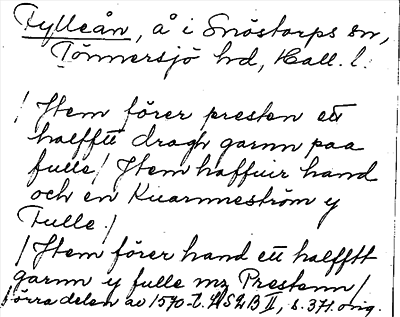 Fylleån, å i Snöstorps sn,
Tönnersjö hd, Hall. l.
/ Item förer presten ett
halfftt dragh garnn paa
fulle / Item haffuir hand
och en Kuarnneström y
Fulle /
/ Item förer hand ett halfftt
garnn y fulle mz Prestenn /
förra delen av 1570-t. HSLB II, s. 371. orig.